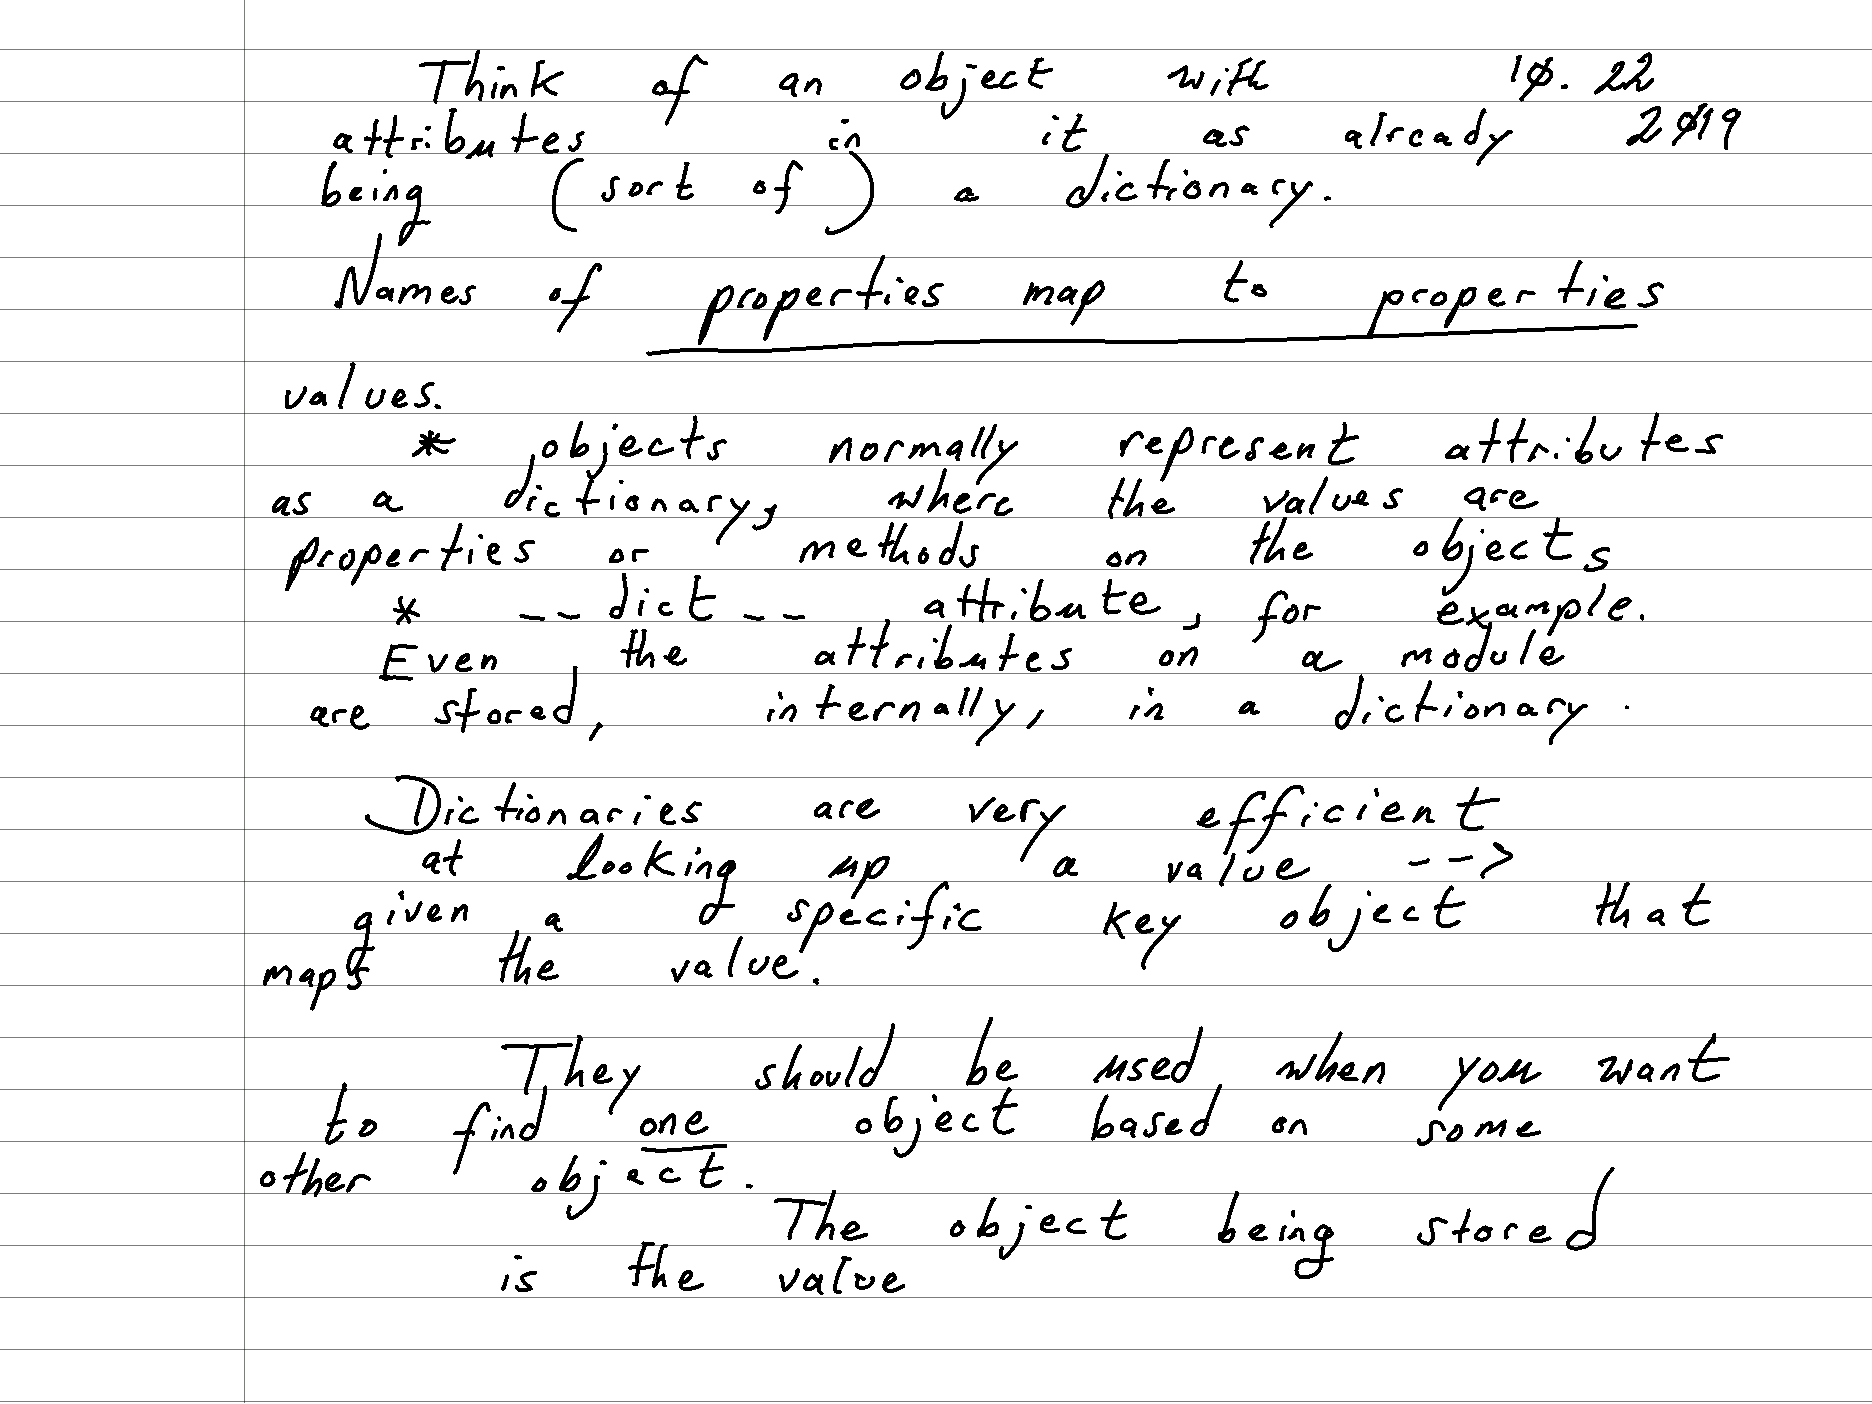 Think of an object with 10.22
attributes in it as already 2019
being (sort of) a dictionary.
Names of properties map to properties
values.
* objects normally represent attributes
as a dictionary, where the values are
properties or methods on the objects
* __dict__ attribute, for example.
Even the attributes on a module
are stored, internally, in a dictionary.
Dictionaries are very efficient
at looking up a value -->
given a specific key object that
maps the value.
They should be used when you want
to find one object based on some
other object.
The object being stored
is the value